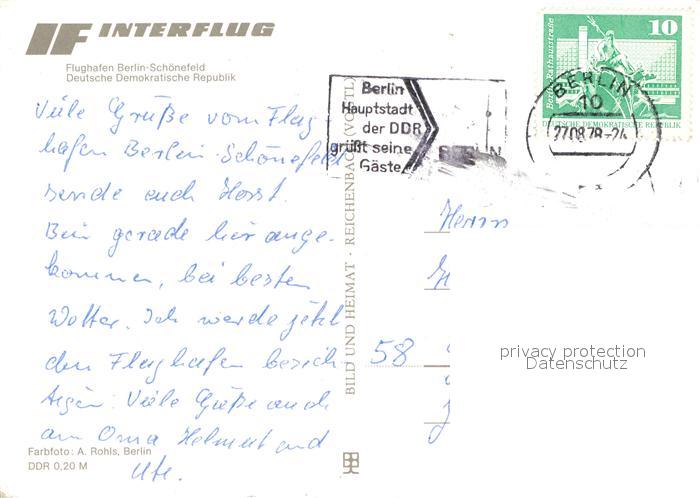 IF INTERFLUG
Flughafen Berlin-Schönefeld
Deutsche Demokratische Republik
Viele Grüße vom Flug-
hafen Berlin-Schönefeld
sende euch Horst.
Bin gerade hier ange-
kommen, bei besten
Wetter. Ich werde jetzt
den Flughafen besich-
tigen. Viele Grüße auch
an Oma Helmut und
Ute.
Farbfoto: A. Rohls, Berlin
DDR 0,20 M
BILD UND HEIMAT · REICHENBACH (VOGTL)
Berlin
Hauptstadt
der DDR
grüßt seine
Gäste
BERLIN
10
BERLIN
10
27.08.78-24
Berlin Rathausstraße
DEUTSCHE DEMOKRATISCHE REPUBLIK
Herrn
58
privacy protection
Datenschutz